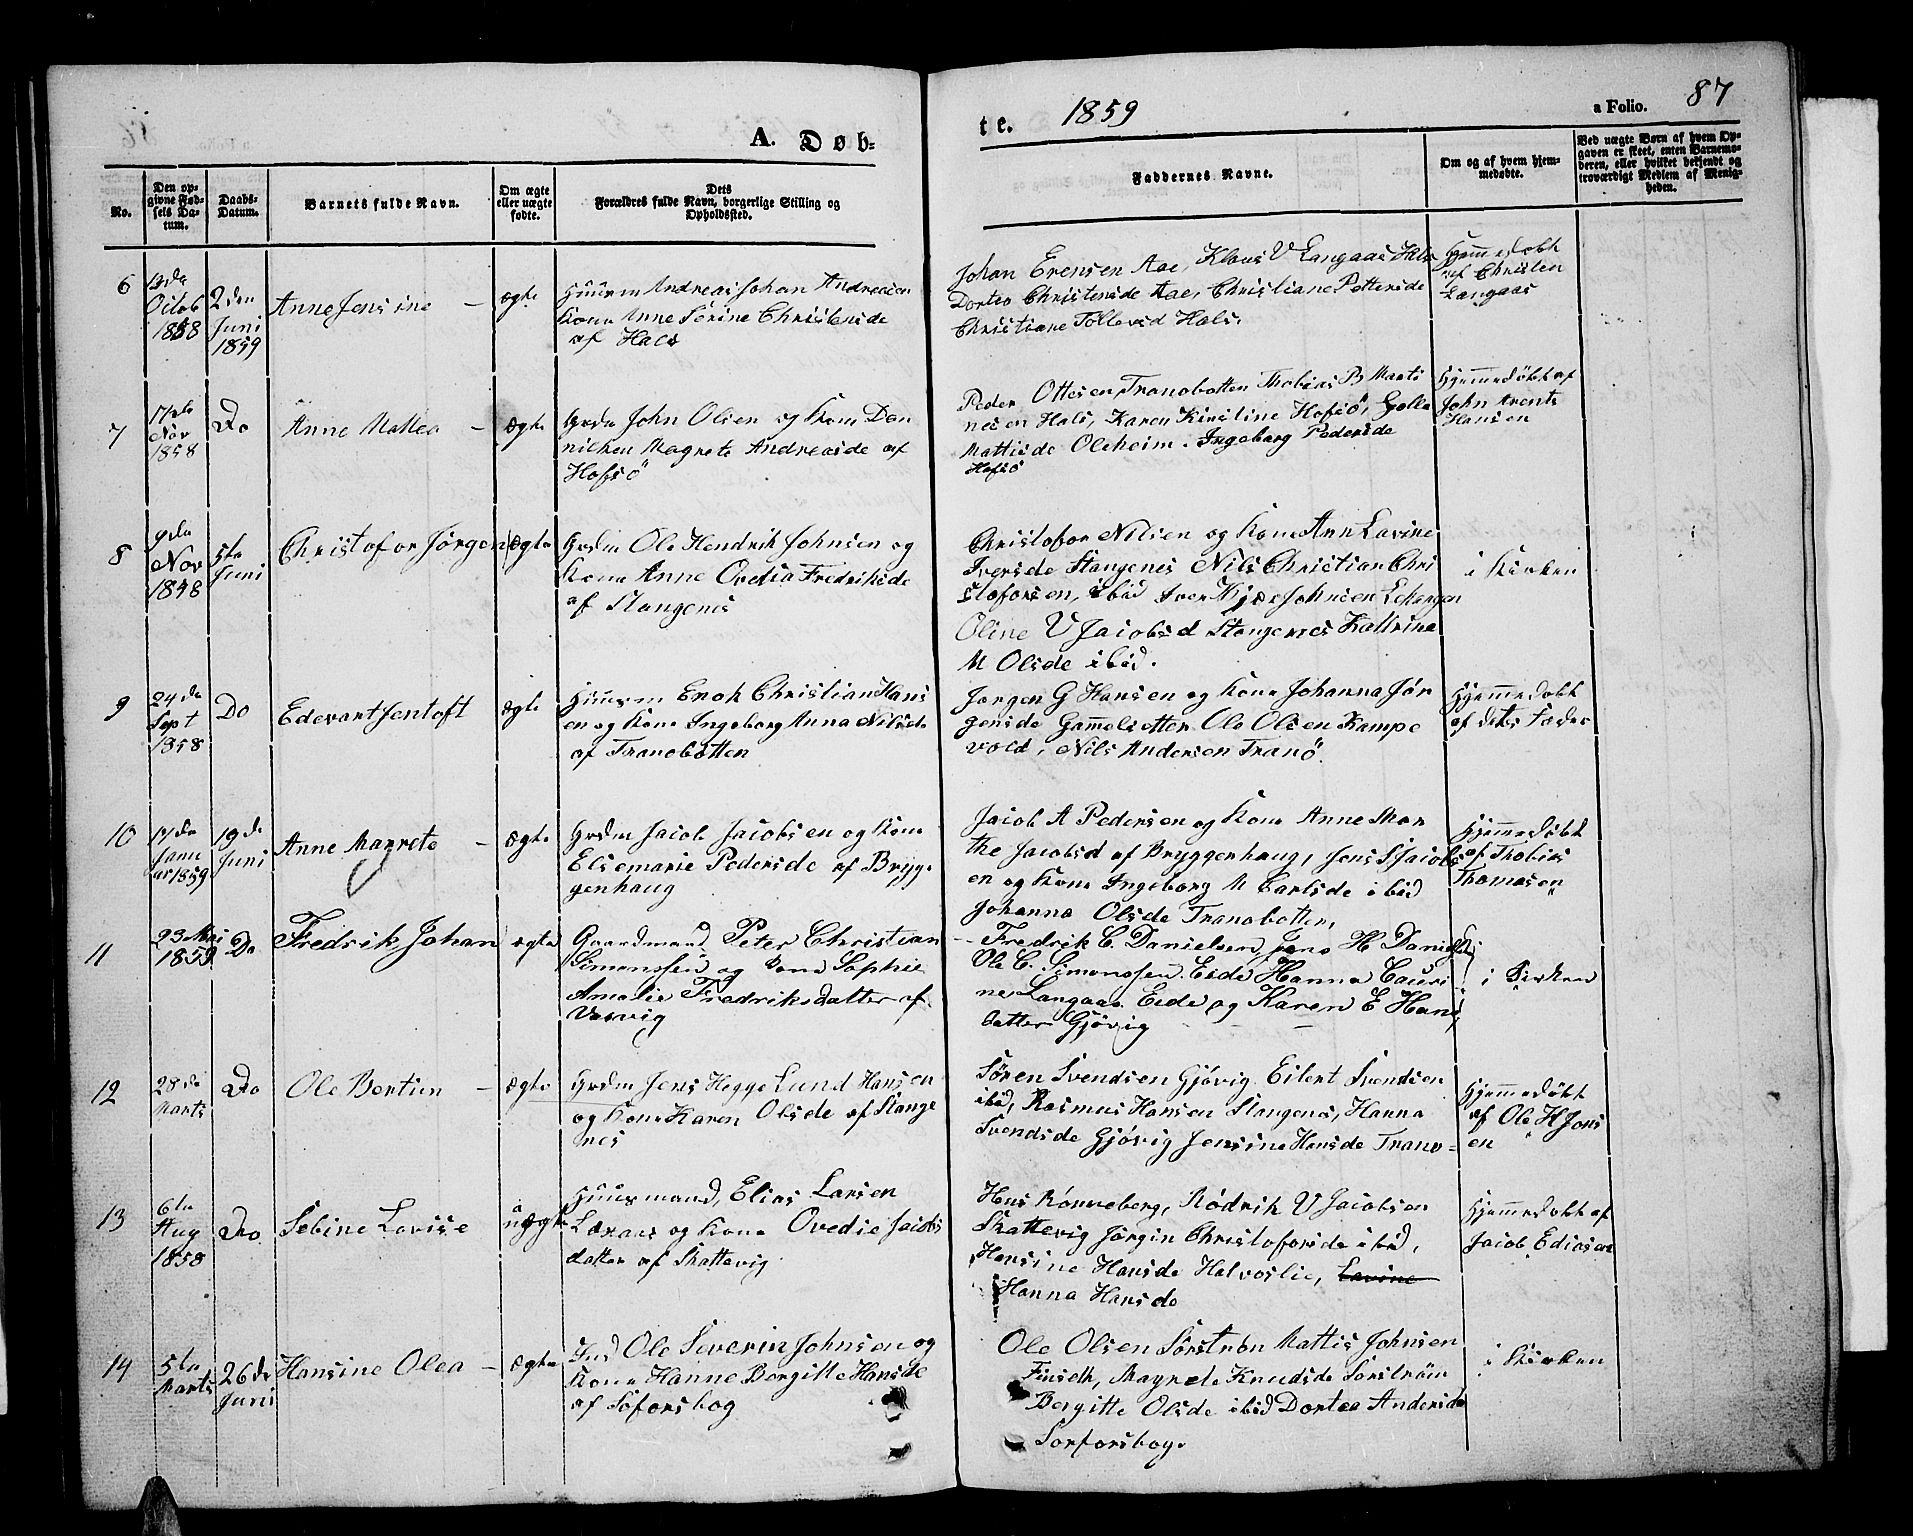 A. Døb-
te. 1859
a Folio. 87
No.
Den op-
givne Fød-
sels Da-
tum.
Daabs-
Datum.
Barnets fulde Navn.
Om ægte
eller uægte
fødte.
Dets
Forældres fulde Navn, borgerlige Stilling og
Opholdssted.
Faddernes Navne.
Om og af hvem hjem-
medøbte.
Ved uægte Børn af hvem Op-
gaven er skeet, enten Barnemo-
deren, eller hvilket bekjendt og
troværdigt Medlem af Menig-
heden.
6
Octob
1858
2den
Juni
1859
Anne Jensine -
ægte
Huusm Andreas Johan Andreasen
Kone Anne Serine Christensde
af Hals
Johan Erensen Aae, Klaus V Langaas Hals
Dortea Christensde Aae, Christiane Pettersde
Christiane Tollevsd Hals.
Hjemmedøbt
af Christen
Langaas
7
17de
Nov
1858
Do
Anne Mattea -
ægte
Grdm John Olsen og Kone Dan
nikken Magrete Andreasde af
Hofsö
Peder Ottesen, Tranobotten Thobias B Marti
nesen Hals, Karen Kirstine Hofsö,
Mattisde Oleheim. Ingeborg Pedersde
Hofsö
Hjemmedöbt af
John Arents
Hansen
8
9de
Nov
1858
5te
Juni
Christofor Jørgen
ægte
Grdm Ole Hendrik Johnsen og
Kone Anne Ovedia Fredriksde
af Stangenes
Christofor Nilsen og Kone Ann Lavine
Iversde Stangenes Nils Christian Chri
stoforsen, ibid Iver Kjær Johnsen Lekangen
Oline V Jacobsd Stangenes Kattrine
M Olsde ibid.
i Kirken
9
24de
Sept
1858
Do
Edevart Jentoft
ægte
Huusm Enok Christian Hans
en og Kone Ingeborg Anna Nilsde
af Tranobotten
Jørgen G Hansen og Kone Johanna Jør
gensde Gammelsetter Ole Olsen Kampe
vold, Nils Andersen Tranö.
Hjemmedöbt
af dets Fader
10
17de
Janu
ar 1859
19de
Juni
Anne Magrete -
ægte
Grdm Jacob Jacobsen og Kone
Elsemarie Pedersde af Bryg-
genhaug
Jacob A Pedersen og Kone Anne Mar
the Jacobsd af Bryggenhaug, Jens S Jacobs
en og Kone Ingeborg M Carlsde ibid
Johanna Olsde Tranobotten,
Hjemmedöbt
af Thobias
Thomasen
11
23 Mai
1859
Do
Fredrik Johan
ægte
Gaardmand Peter Christian
Simonssen og Kone Sophie
Amalie Fredriksdatter af
Vasvig
- Fredrik C. Danielsen, Jens H Daniels
Ole C. Simonssen Eide Hanna Lauri
ne Langaas Eide og Karen E Hans
datter Gjövig
i Kirken
12
28de
Marts
Do
Ole Bertin -
ægte
Grdm Jens Hegge Lund Hansen
og Kone Karen Olsde af Stange
nes
Søren Svendsen Gjövig Eilert Svendsen
ibid, Rasmus Hansen Stangenes, Hanna
Svendsde Gjövig Jensine Hansde Trano-
Hjemmedöbt
af Ole H Jons
en
13
6te
Aug
1858
Do
Sebine Lovise
uægte
Huusmand, Elias Larsen
og Kone Ovedie Jacobs
datter af Skattevig
Hans Rönneberg, Rödrik V Jacobsen
Skattevig Jörgin Christoforsde ibid,
Hansine Hansde Halvoslie, Lavine
Hanna Hansde
Hjemmedöbt af
Jacob Ediasen
14
5te
Marts
26de
Juni
Hansine Olea -
ægte
Ole Severin Johnsen og
Kone Hanne Bergitte Hansde
af Soforsbog
Ole Olsen Sörström Mattis Johnsen
Finseth, Magrete Knudsde Sörström
Bergitte Olsde ibid Dortea Andersde
Sorforsbog.
i Kirken